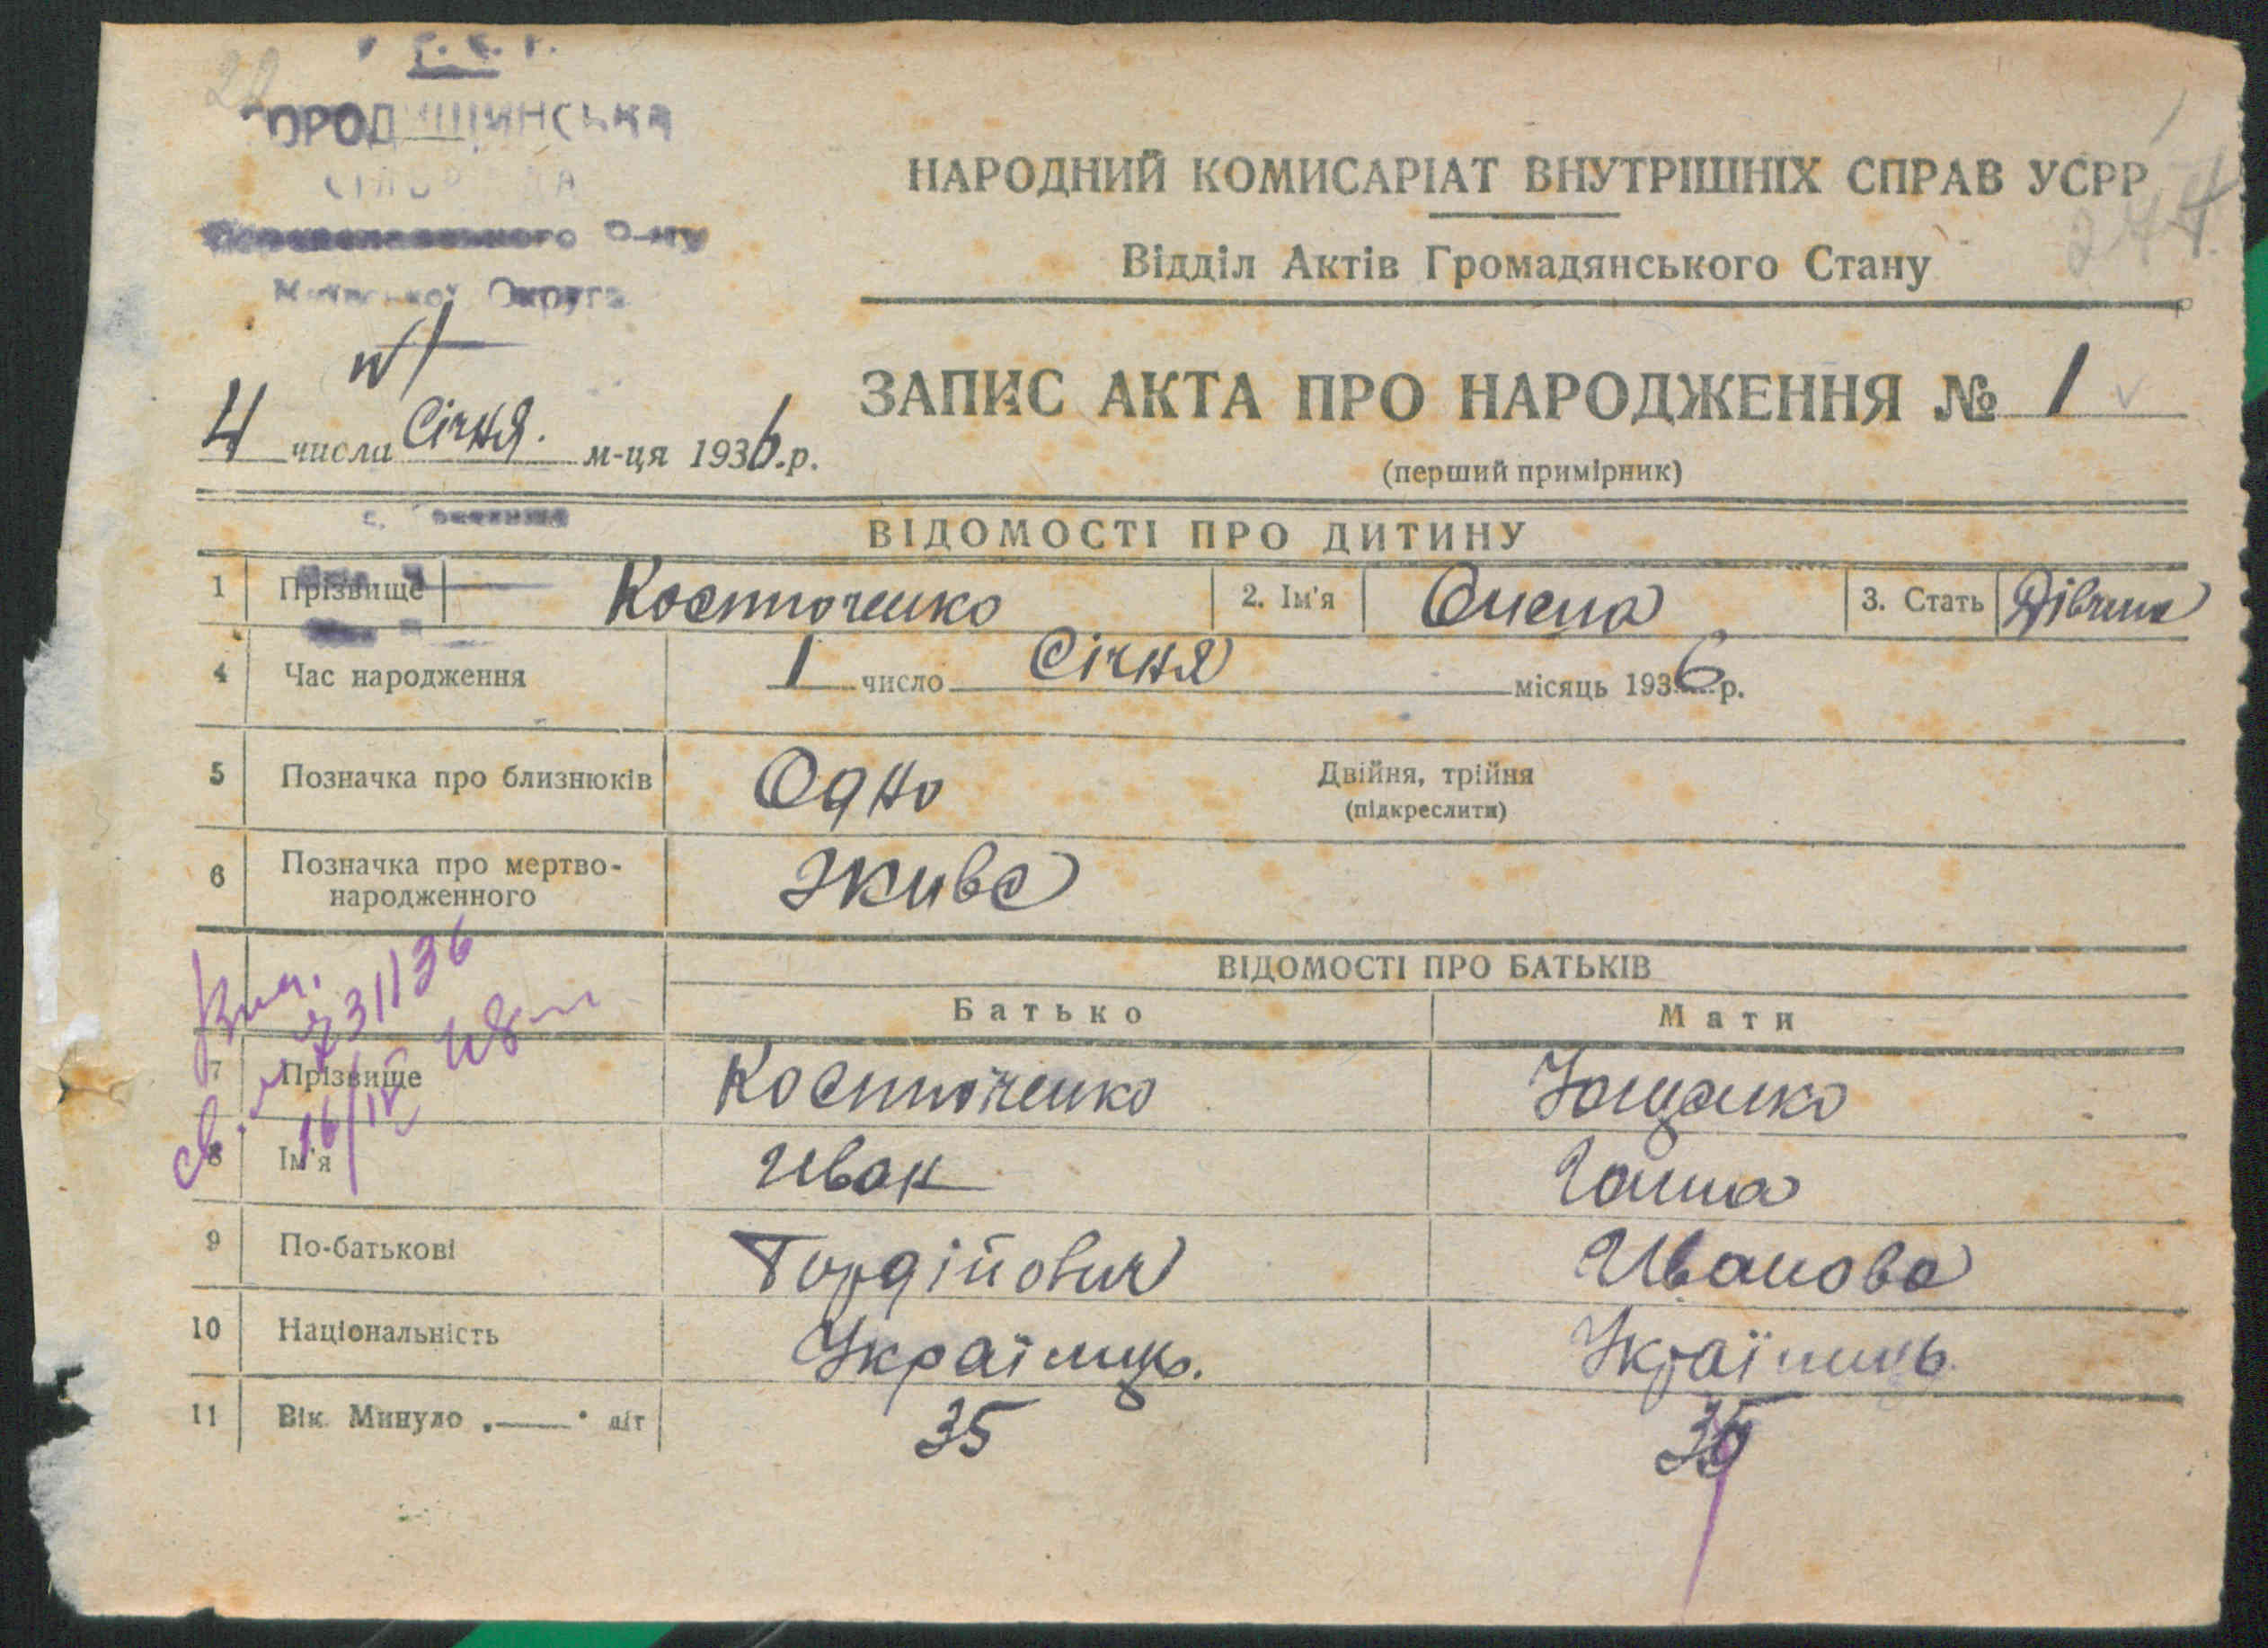 ОРОДИЩИНСЬКА
Округа
НАРОДНИЙ КОМИСАРІАТ ВНУТРІШНІХ СПРАВ УСРР
Відділ Актів Громадянського Стану
4 числа Січня. м-ця 1936.р.
ЗАПИС АКТА ПРО НАРОДЖЕННЯ № 1
(перший примірник)
ВІДОМОСТІ ПРО ДИТИНУ
1 Прізвище Костюченко 2. Ім'я Олена 3. Стать Дівчина
4 Час народження 1 число Січня місяць 1936 р.
5 Позначка про близнюків Одно Двійня, трійня
(підкреслити)
6 Позначка про мертво-
народженного Живе
ВІДОМОСТІ ПРО БАТЬКІВ
Батько Мати
7 Прізвище Костюченко Ющенко
8 Ім'я Иван Ганна
9 По-батькові Гордійович Иванова
10 Національність Українць. Українць
11 Вік Минуло „——" літ 35